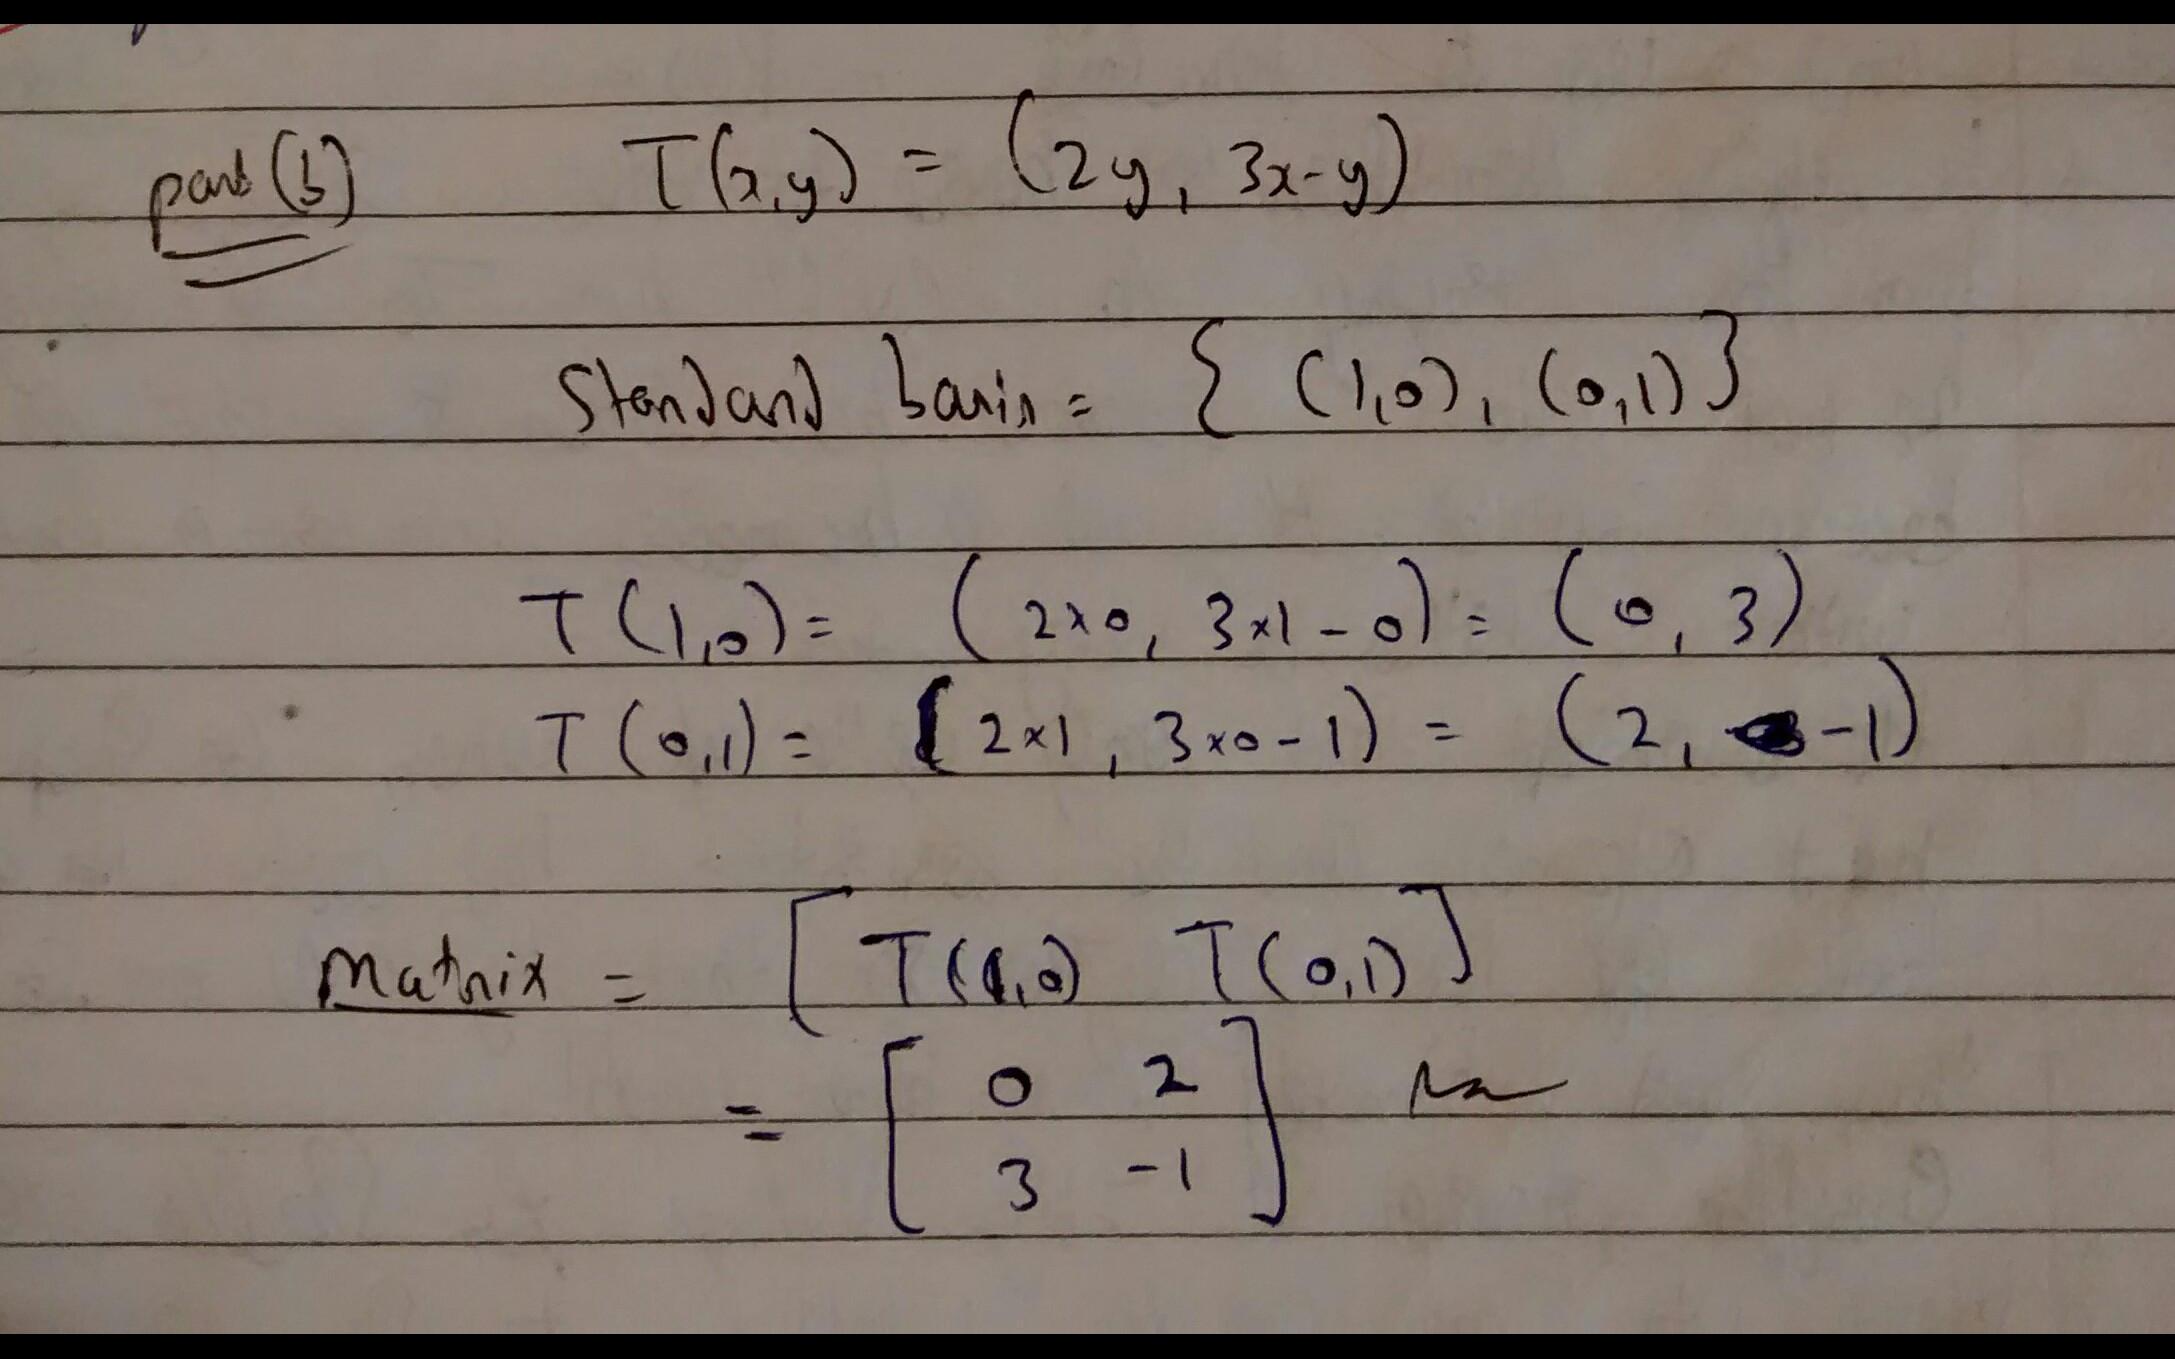 part (b) T(x,y) = (2y, 3x-y)
Standard basis = { (1,0), (0,1) }
T(1,0) = (2×0, 3×1-0) = (0, 3)
T(0,1) = (2×1, 3×0-1) = (2, -1)
Matrix = [ T(1,0) T(0,1) ]
= [ 0 2
3 -1 ]